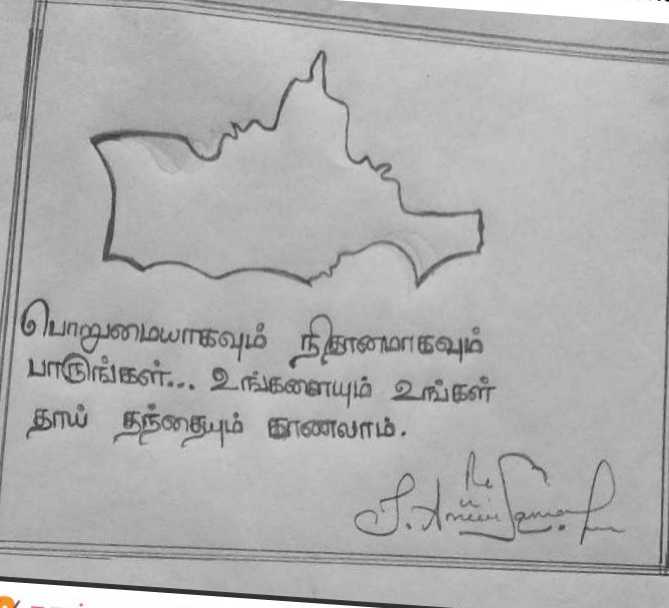 பொறுமையாகவும் நிதானமாகவும்
பாருங்கள்... உங்களையும் உங்கள்
தாய் தந்தையும் காணலாம்.